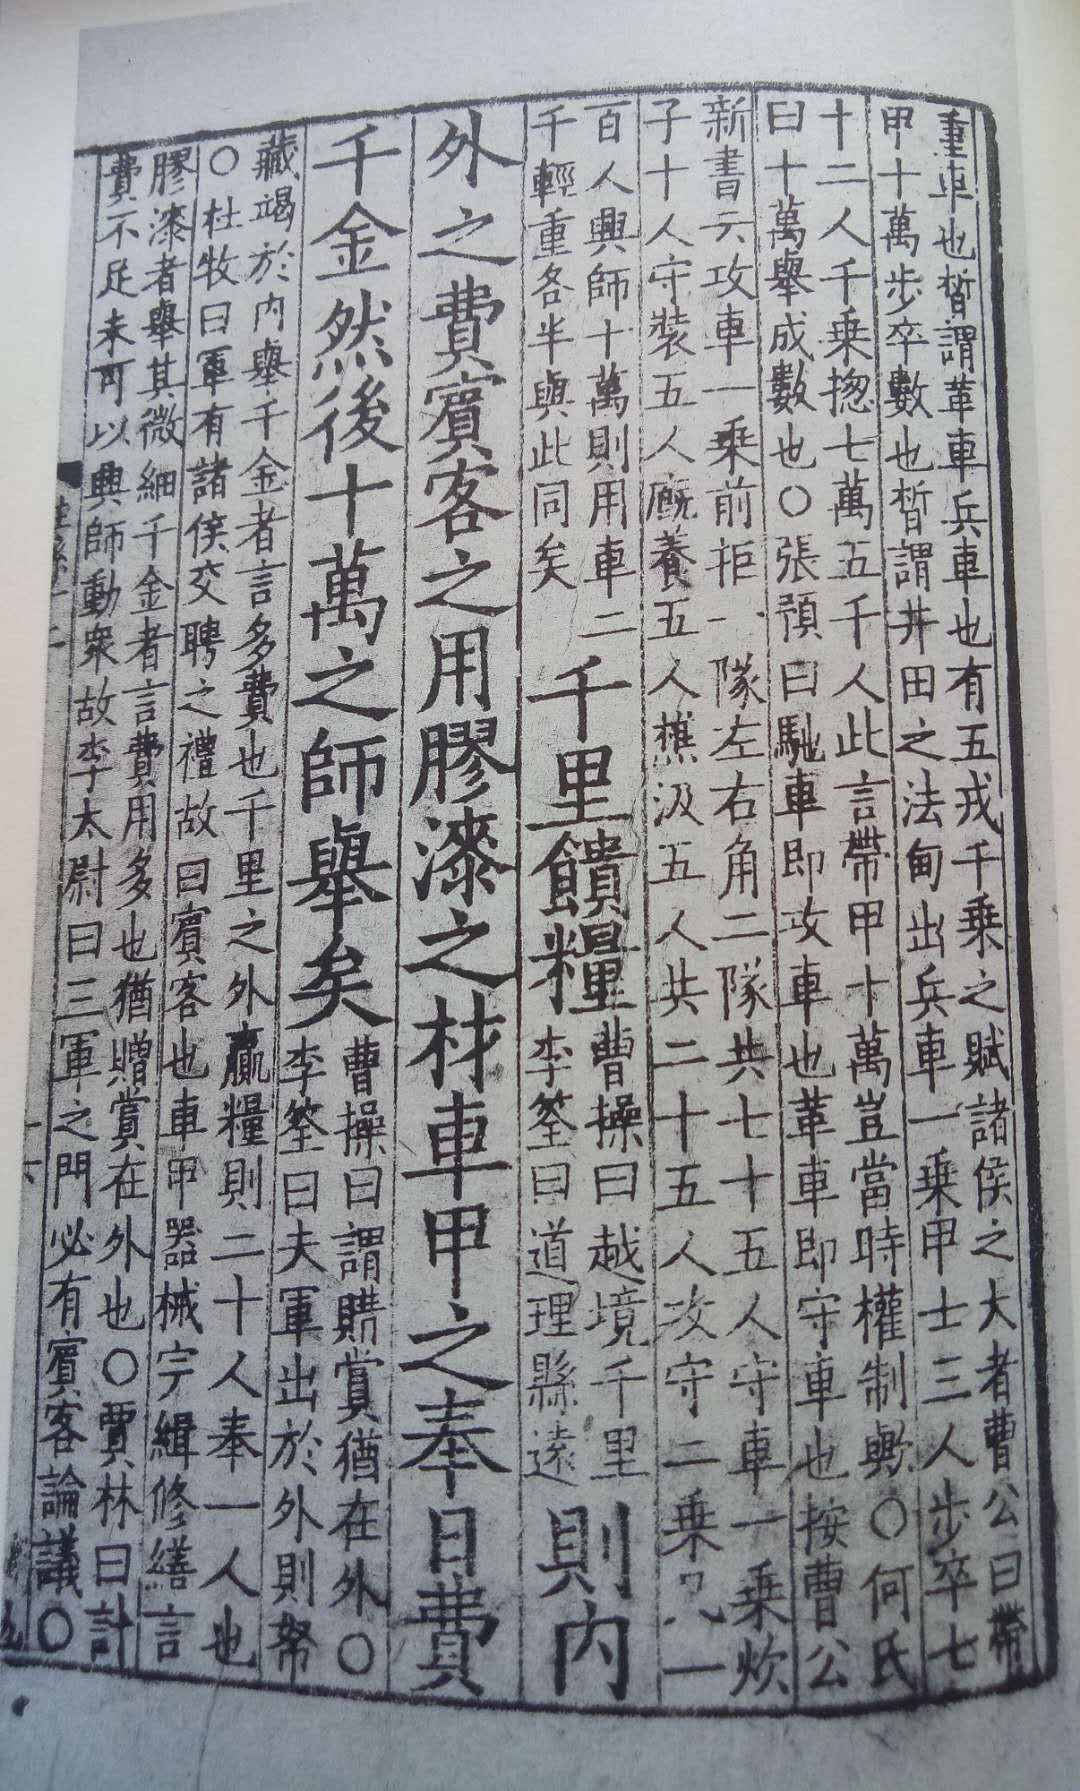 重車也皙謂革車兵車也有五戎千乗之賦諸侯之大者曹公曰帶
甲十萬步卒數也皙謂井田之法甸出兵車一乗甲士三人步卒七
十二人千乗揔七萬五千人此言帶甲十萬豈當時權制歟○何氏
曰十萬舉成數也○張預曰馳車即攻車也革車即守車也按曹公
新書云攻車一乗前拒一隊左右角二隊共七十五人守車一乗炊
子十人守裝五人廄養五人樵汲五人共二十五人攻守二乗凡一
百人興師十萬則用車二
千輕重各半與此同矣
千里饋糧
曹操曰越境千里
李筌曰道理縣遠
則内
外之費賓客之用膠漆之材車甲之奉日費
千金然後十萬之師舉矣
曹操曰謂購賞猶在外○
李筌曰夫軍出於外則帑
藏竭於内舉千金者言多費也千里之外贏糧則二十人奉一人也
○杜牧曰軍有諸侯交聘之禮故曰賓客也車甲器械完緝修繕言
膠漆者舉其微細千金者言費用多也猶贈賞在外也○賈林曰計
費不足未可以興師動衆故李太尉曰三軍之門必有賓客論議○